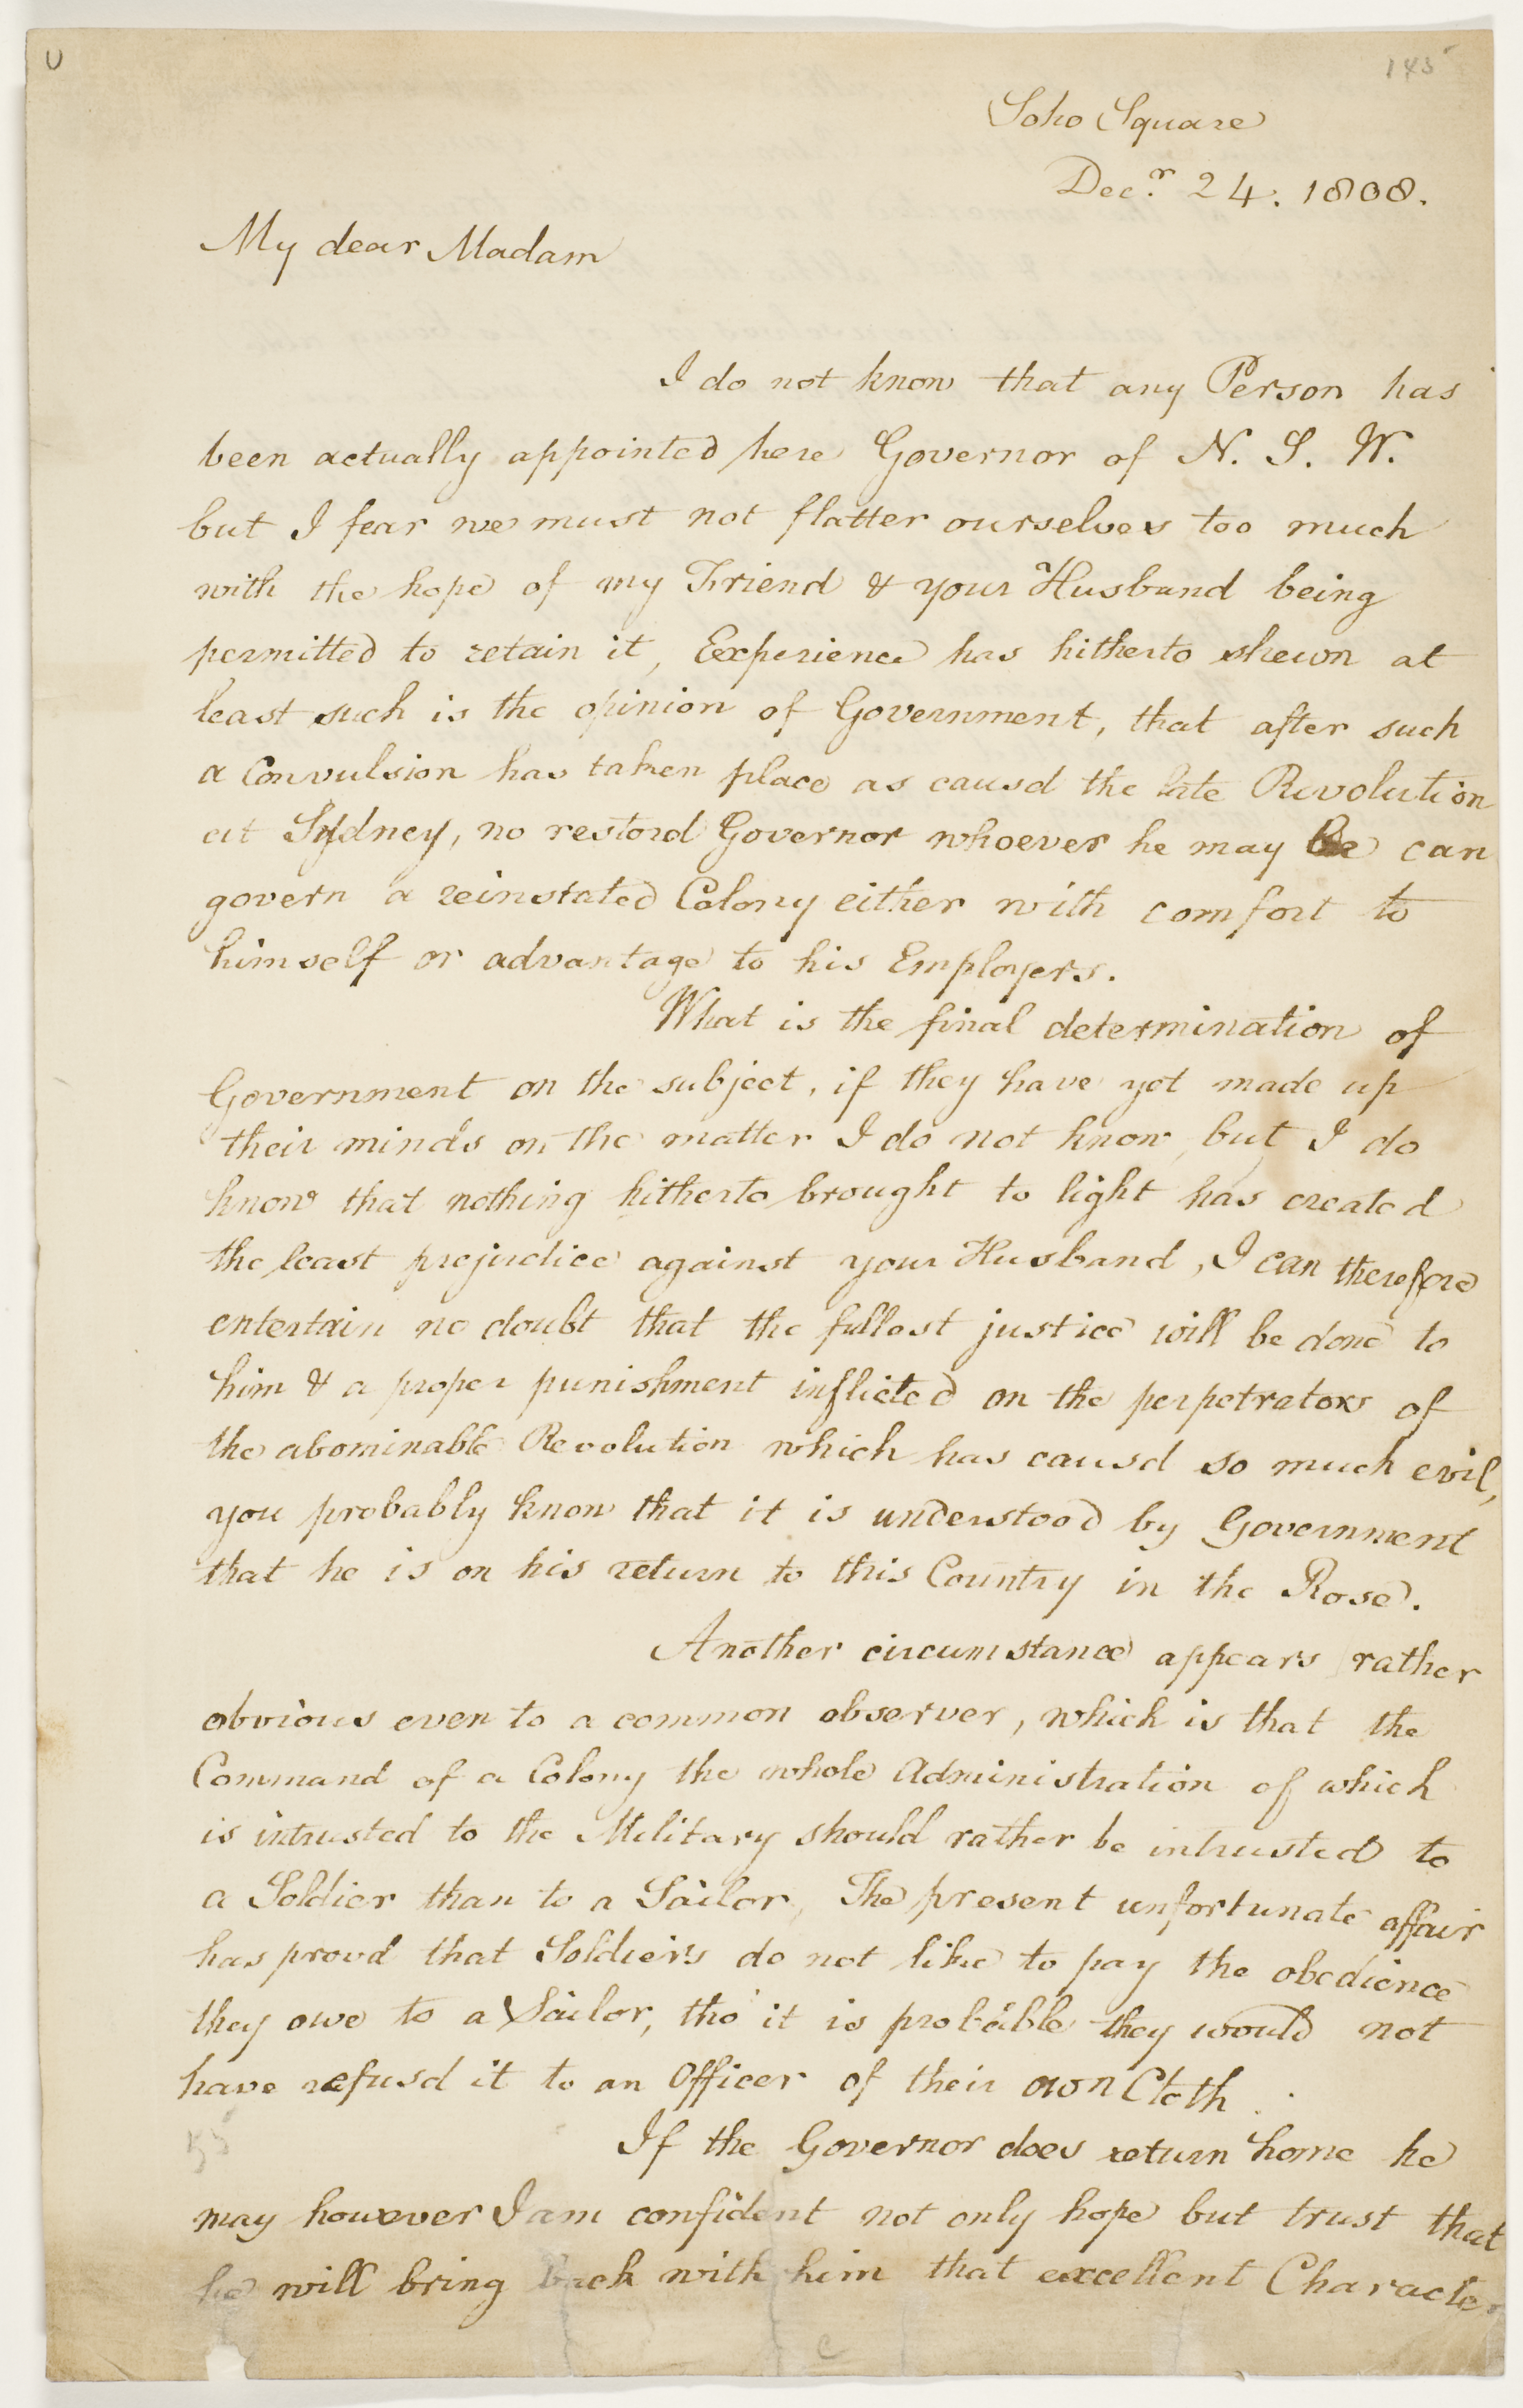 U
145
Soho Square
Decr. 24. 1808.
My dear Madam
I do not know that any Person has
been actually appointed here Governor of N. S. W.
but I fear we must not flatter ourselves too much
with the hope of my Friend & your Husband being
permitted to retain it, Experience has hitherto shewn at
least such is the opinion of Government, that after such
a Convulsion has taken place as causd the late Revolution
at Sydney, no restord Governor whoever he may Be can
govern a reinstated Colony either with comfort to
himself or advantage to his Employers.
What is the final determination of
Government on the subject, if they have yet made up
their minds on the matter I do not know, but I do
know that nothing hitherto brought to light has created
the least prejudice against your Husband, I can therefore
entertain no doubt that the fullest justice will be done to
him & a proper punishment inflicted on the perpetrators of
the abominable Revolution which has causd so much evil,
you probably know that it is understood by Government
that he is on his return to this Country in the Rose.
Another circumstance appears rather
obvious even to a common observer, which is that the
Command of a Colony the whole Administration of which
is intrusted to the Military should rather be intrusted to
a Soldier than to a Sailor, The present unfortunate affair
has provd that Soldiers do not like to pay the obedience
they owe to a Sailor, tho' it is probable they would not
have refusd it to an Officer of their own Cloth.
If the Governor does return home he
may however I am confident not only hope but trust that
he will bring back with him that excellent Character